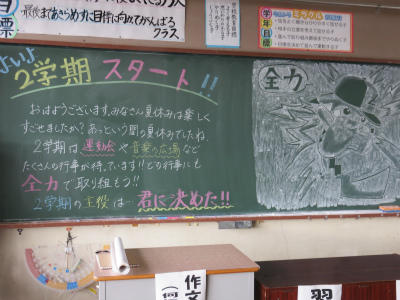 最後まであきらめず目標に向めてがんばる
クラス
学年目標
いよいよ
2学期 スタート!!
おはようございます。みなさん夏休みは楽しく
すごせましたか?あっという間の夏休みでしたね。
2学期は、運動会や音楽の広場など
たくさんの行事が待っています!!どの行事にも
全力で取り組もう!!
2学期の主役は… 君に決めた!!
全力
作文
習